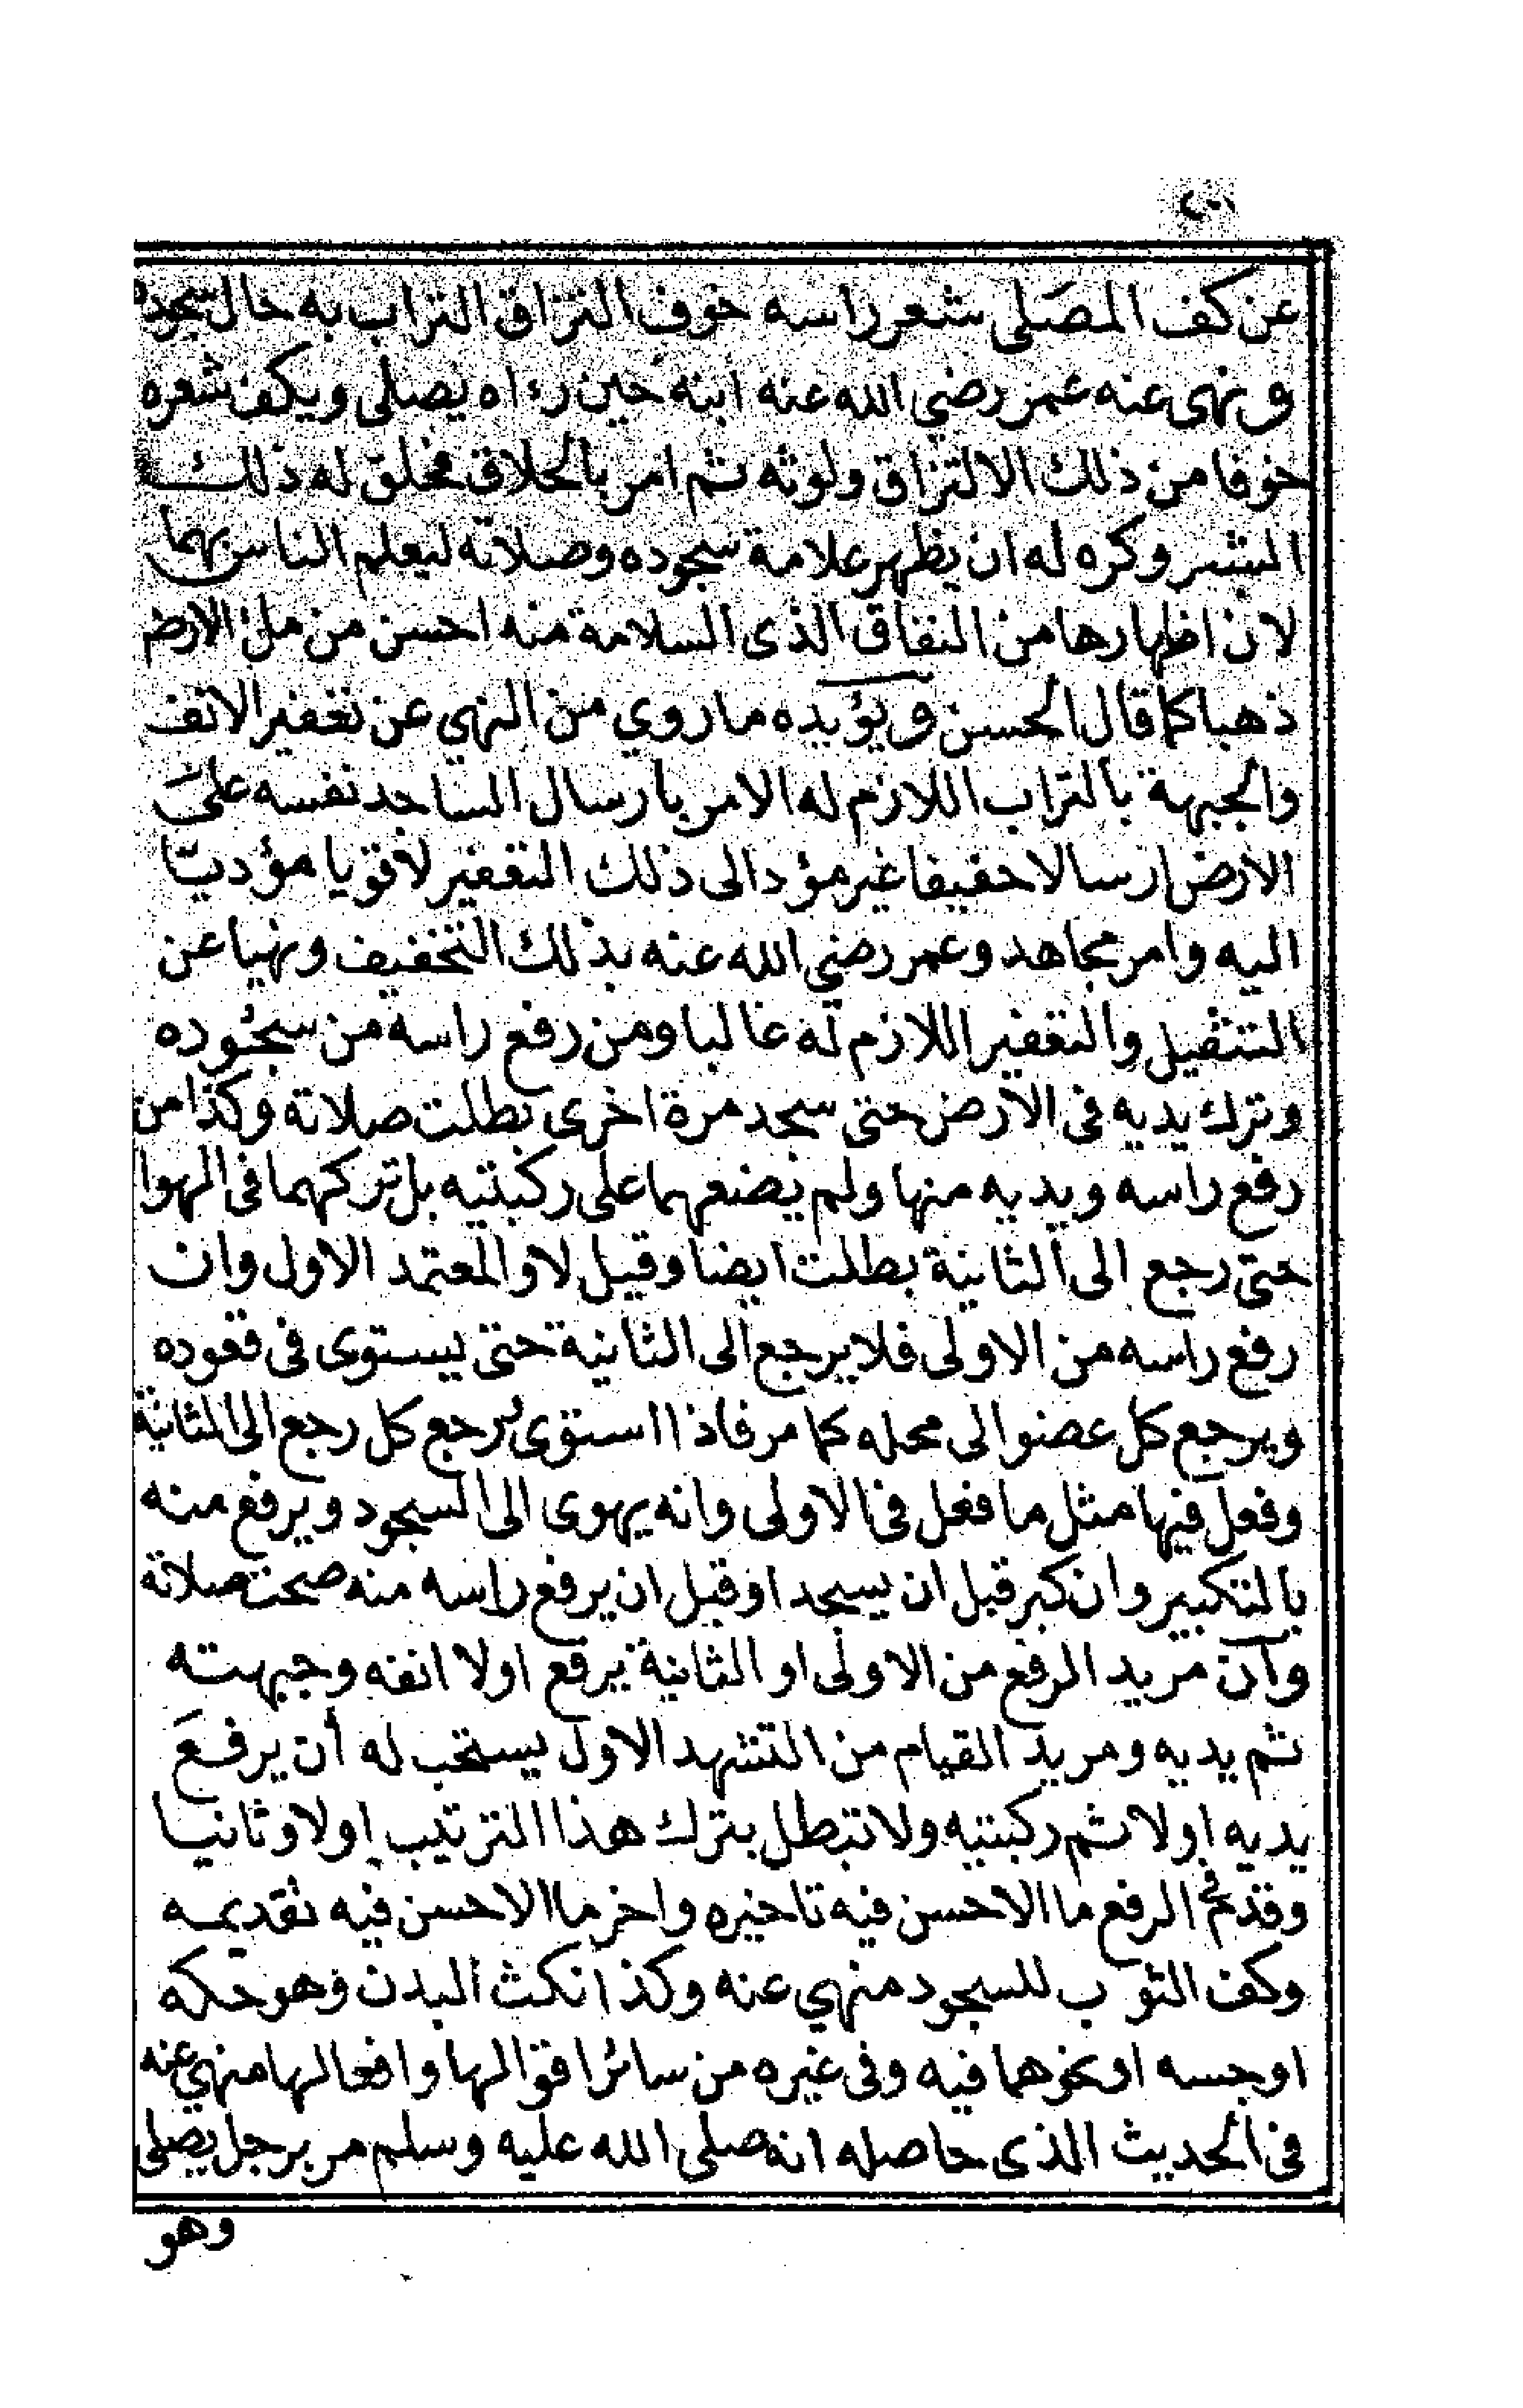 عن كف المصلى شعر راسه خوف التزاق التراب به حال سجوده
ونهى عنه عمر رضي الله عنه ابنه حين رءاه يصلى ويكف شعره
خوفا من ذلك الالتزاق ولوثه ثم امر بالحلاق فحلق له ذلك
الشعر وكره له ان يظهر علامة سجوده وصلاته ليعلم الناس بهما
لان اظهارها من النفاق الذى السلامة منه احسن من ملئ الارض
ذهبا كما قال الحسن ويؤيده ما روي من النهي عن تعفير الانف
والجبهة بالتراب اللازم له الامر بارسال الساجد نفسه على
الارض ارسالا خفيفا غير مؤد الى ذلك التعفير لا قويا مؤديا
اليه وامر مجاهد وعمر رضي الله عنه بذلك التخفيف ونهيا عن
التثقيل والتعفير اللازم له غالبا ومن رفع راسه من سجوده
وترك يديه فى الارض حتى سجد مرة اخرى بطلت صلاته وكذا من
رفع راسه ويديه منها ولم يضعهما على ركبتيه بل تركهما فى الهوا
حتى رجع الى الثانية بطلت ايضا وقيل لا والمعتمد الاول وان
رفع راسه من الاولى فلا يرجع الى الثانية حتى يستوى فى قعوده
ويرجع كل عضو الى محله كما مر فاذا استوى ورجع كل رجع الى الثانية
وفعل فيها مثل ما فعل فى الاولى وانه يهوى الى السجود ويرفع منه
بالتكبير وان كبر قبل ان يسجد او قبل ان يرفع راسه منه صحت صلاته
وان مريد الرفع من الاولى او الثانية يرفع اولا انفه وجبهته
ثم يديه ومريد القيام من التشهد الاول يستحب له أن يرفع
يديه اولا ثم ركبتيه ولا تبطل بترك هذا الترتيب اولا وثانيا
وقدم فى الرفع ما الاحسن فيه تاخيره واخر ما الاحسن فيه تقديمه
وكف الثوب للسجود منهي عنه وكذا نكث البدن وهو حكه
او جسه او نحوهما فيه وفى غيره من سائر اقوالها وافعالها منهي عنه
فى الحديث الذى حاصله انه صلى الله عليه وسلم مر برجل يصلى
وهو